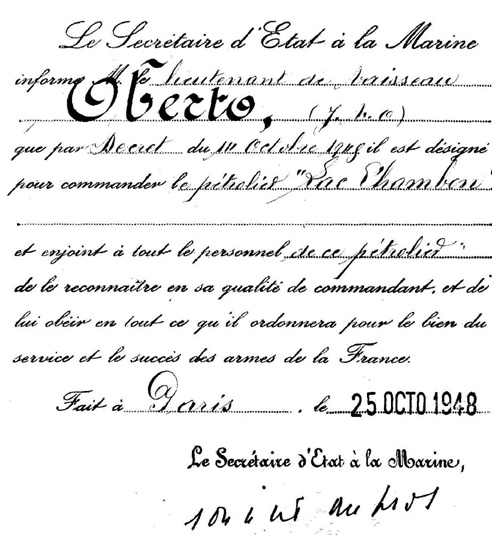 Le Secrétaire d'Etat à la Marine
informe M. le lieutenant de vaisseau
Oberto, (J. L. O)
que par Decret du 14 Octobre 1948 il est désigné
pour commander le pétrolier "Lac Chambon"
et enjoint à tout le personnel de ce pétrolier
de le reconnaître en sa qualité de commandant, et de
lui obéir en tout ce qu'il ordonnera pour le bien du
service et le succès des armes de la France.
Fait à Paris . le 25 OCTO 1948
Le Secrétaire d'Etat à la Marine,